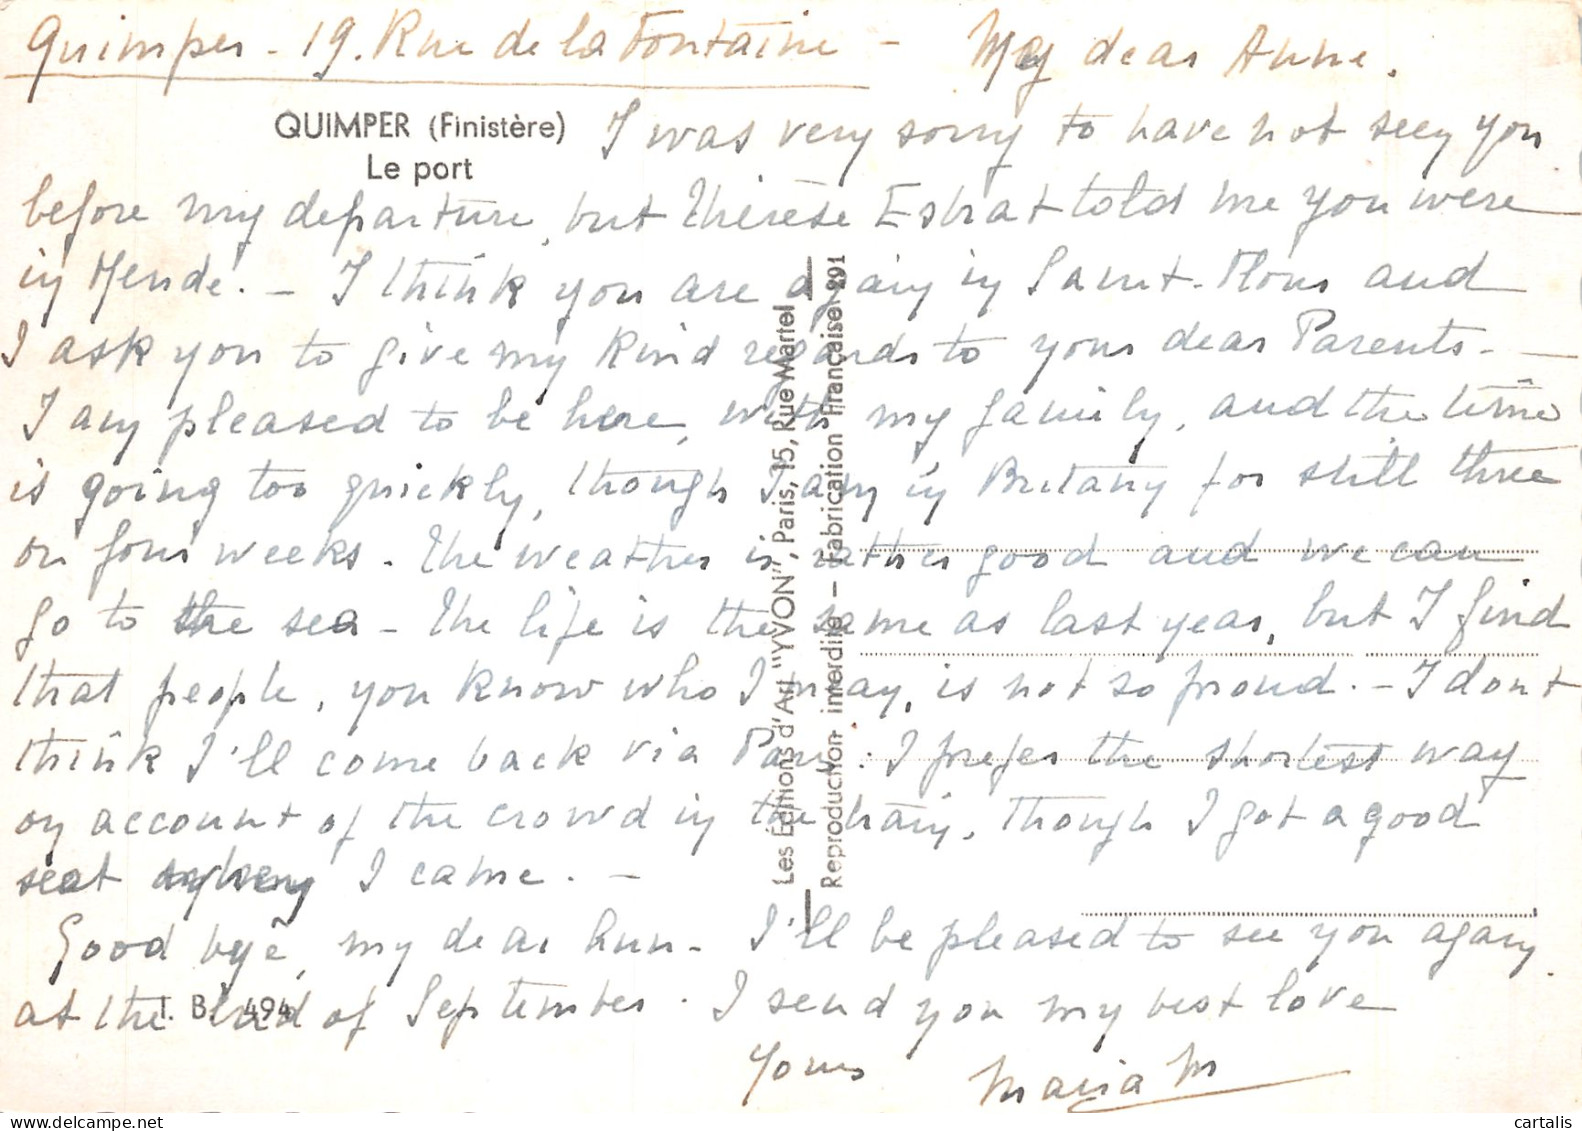 Quimper - 19. Rue de la Fontaine - My dear Anne.
QUIMPER (Finistère)
Le port
I was very sorry to have not seen you
before my departure, but Thérèse Estrat told me you were
in Mende. - I think you are again in Saint-Flour and
I ask you to give my kind regards to your dear Parents. -
I am pleased to be here, with my family, and the time
is going too quickly, though I am in Britany for still three
or four weeks. The weather is rather good and we can
go to the sea - The life is the same as last year, but I find
that people, you know who I may, is not so proud. - I don't
think I'll come back via Paris. I prefer the shortest way
on account of the crowd in the train, though I got a good
seat when I came. -
Good bye, my dear Ann - I'll be pleased to see you again
at the end of September. I send you my best love
Yours Maria M
Les Éditions d'Art "YVON", Paris, 15, Rue Martel
Reproduction interdite - Fabrication Française 291
I. B. 494
cartalis